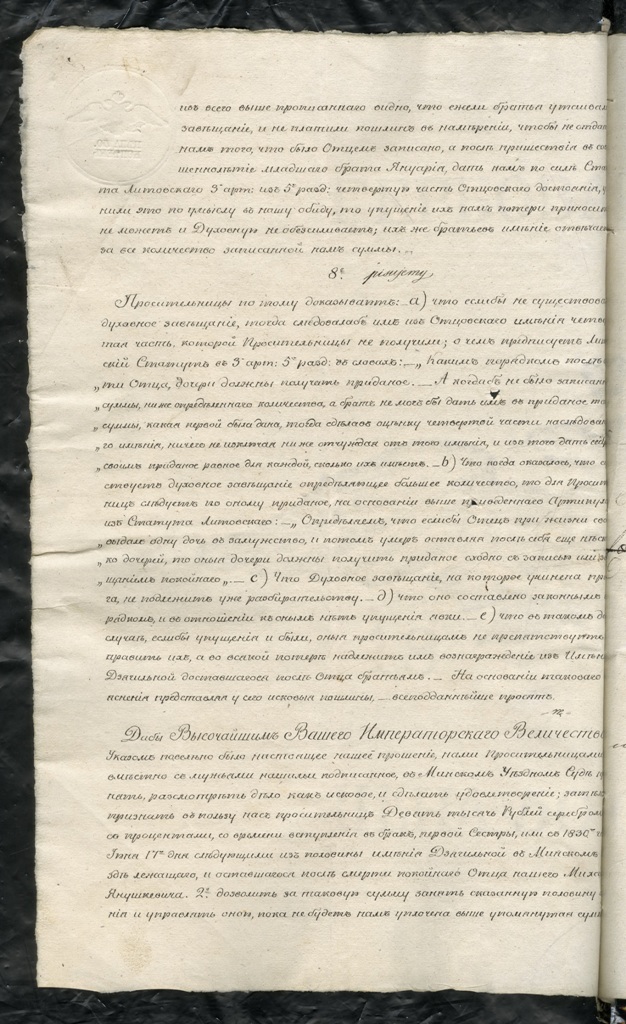 изъ всего выше прописаннаго видно, что ежели братья утаивал
завѣщаніе, и не платили пошлинъ въ намѣреніи, чтобы не отда
намъ того, что было Отцемъ записано, а послѣ пришествія въ со
шеннолѣтіе младшаго брата Януарія, дать намъ по силѣ Ста
та Литовскаго 3 арт: изъ 5го разд: четвертую часть Отцовскаго достоянія,
ними это по умыслу въ нашу обиду, то упущеніе ихъ намъ потери приносит
не можетъ и Духовную не обезсиливаетъ; ихъ же братьевъ имѣніе отвѣчае
за все количество записанной намъ суммы. ..
8е пункту
Просительницы по тому доказываютъ: а) что еслибы не существова
духовное завѣщаніе, тогда слѣдовалабъ имъ изъ Отцовскаго имѣнія четве
тая часть, которой Просительницы не получили; о чемъ предписуетъ Лит
скій Статутъ въ 3 арт: 5го разд: въ словахъ: — „Какимъ порядкомъ послѣ
„ти Отца, дочери должны получать приданое. — А когдабъ не было записан
„суммы, ниже опредѣленнаго количества, а братъ не могъ бы дать имъ въ приданое то
„суммы, какая первой была дана, тогда сдѣлавъ оцѣнку четвертой части наслѣдован
„го имѣнія, ничего не исключая ниже отчуждая отъ того имѣнія, и изъ того дать сест
„своимъ приданое равное для каждой, сколько ихъ имѣетъ. — b) Что когда оказалось, что с
ствуетъ духовное завѣщаніе опредѣляющее большее количество, то для Просит
ницъ слѣдуетъ по оному приданое, на основаніи выше приведеннаго Артикул
изъ Статута Литовскаго: — „Опредѣляемъ, что еслибы Отецъ при жизни сво
„выдалъ одну дочь въ замужство, и потомъ умеръ оставляя послѣ себя еще нѣск
„ко дочерей, то оныя дочери должны получить приданое сходно съ записью или
„щаніемъ покойнаго„ — с) Что Духовное завѣщаніе, на которое учинена при
га, не подлежитъ уже разбирательству. — д) что оно составлено законнымъ
рядкомъ, и въ отношеніи къ онымъ нѣтъ упущенія поки. — е) что въ такомъ
случаѣ, еслибы упущенія и были, оныя просительницамъ не препятствуютъ
править ихъ, а во всякой потерѣ надлежитъ имъ вознагражденіе изъ Имѣн
Дягильной доставшагося послѣ Отца братьямъ. — На основаніи таковаго
ясненія представляя у сего исковыя пошлины, — всеподданнѣйше просятъ.
Дабы Высочайшимъ Вашего Императорскаго Величеств
Указомъ повелѣно было настоящее нашеѣ прошеніе, нами Просительницами
вмѣстно съ мужьями нашими подписанное, въ Минскомъ Уѣздномъ Судѣ
нять, разсмотрѣть дѣло какъ исковое, и сдѣлать удовлетвореніе; затѣмъ
признать въ пользу насъ просительницъ Девять тысячъ Рублей серебром
съ процентами, со времени вступленія въ бракъ, первой Сестры, или съ 1830
Іюня 17го дня слѣдующими изъ половины имѣнія Дягильной въ Минскомъ
здѣ лежащаго, и оставшагося послѣ смерти покойнаго Отца нашего Миха
Янушкевича. 2е дозволить за таковую сумму занять сказанную половину
нія и управлять оной, пока не будетъ намъ уплочена выше упомянутая сумм